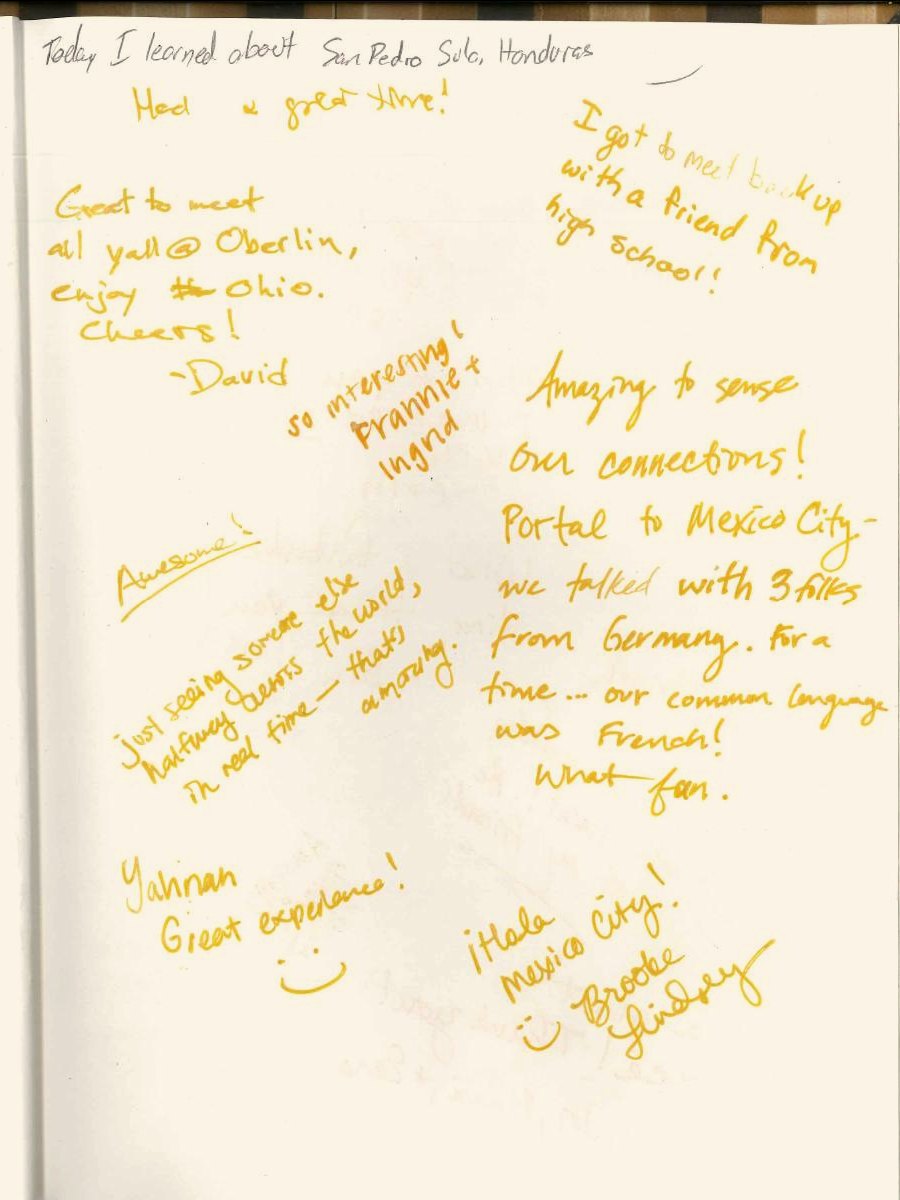 Today I learned about San Pedro Sula, Honduras
Had a great time!
I got to meet back up
with a friend from
high school!
Great to meet
all yall @ Oberlin,
enjoy Ohio.
Cheers!
-David
so interesting!
Frannie +
Ingrid
Amazing to sense
our connections!
Portal to Mexico City -
we talked with 3 folks
from Germany. For a
time... our common language
was French!
What fun.
Awesome!
just seeing someone else
halfway across the world,
in real time — that's
amazing.
Great experience!
¡Hola
Mexico City!
Brooke
Lindsey